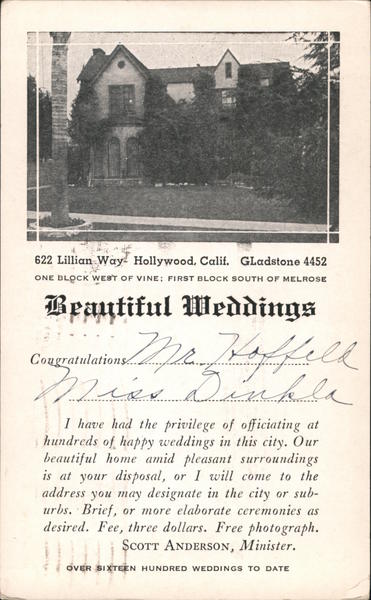 622 Lillian Way- Hollywood, Calif. GLadstone 4452
ONE BLOCK WEST OF VINE; FIRST BLOCK SOUTH OF MELROSE
Beautiful Weddings
Congratulations Mr. Hoffeld
Miss Dinkla
I have had the privilege of officiating at
hundreds of happy weddings in this city. Our
beautiful home amid pleasant surroundings
is at your disposal, or I will come to the
address you may designate in the city or sub-
urbs. Brief, or more elaborate ceremonies as
desired. Fee, three dollars. Free photograph.
SCOTT ANDERSON, Minister.
OVER SIXTEEN HUNDRED WEDDINGS TO DATE